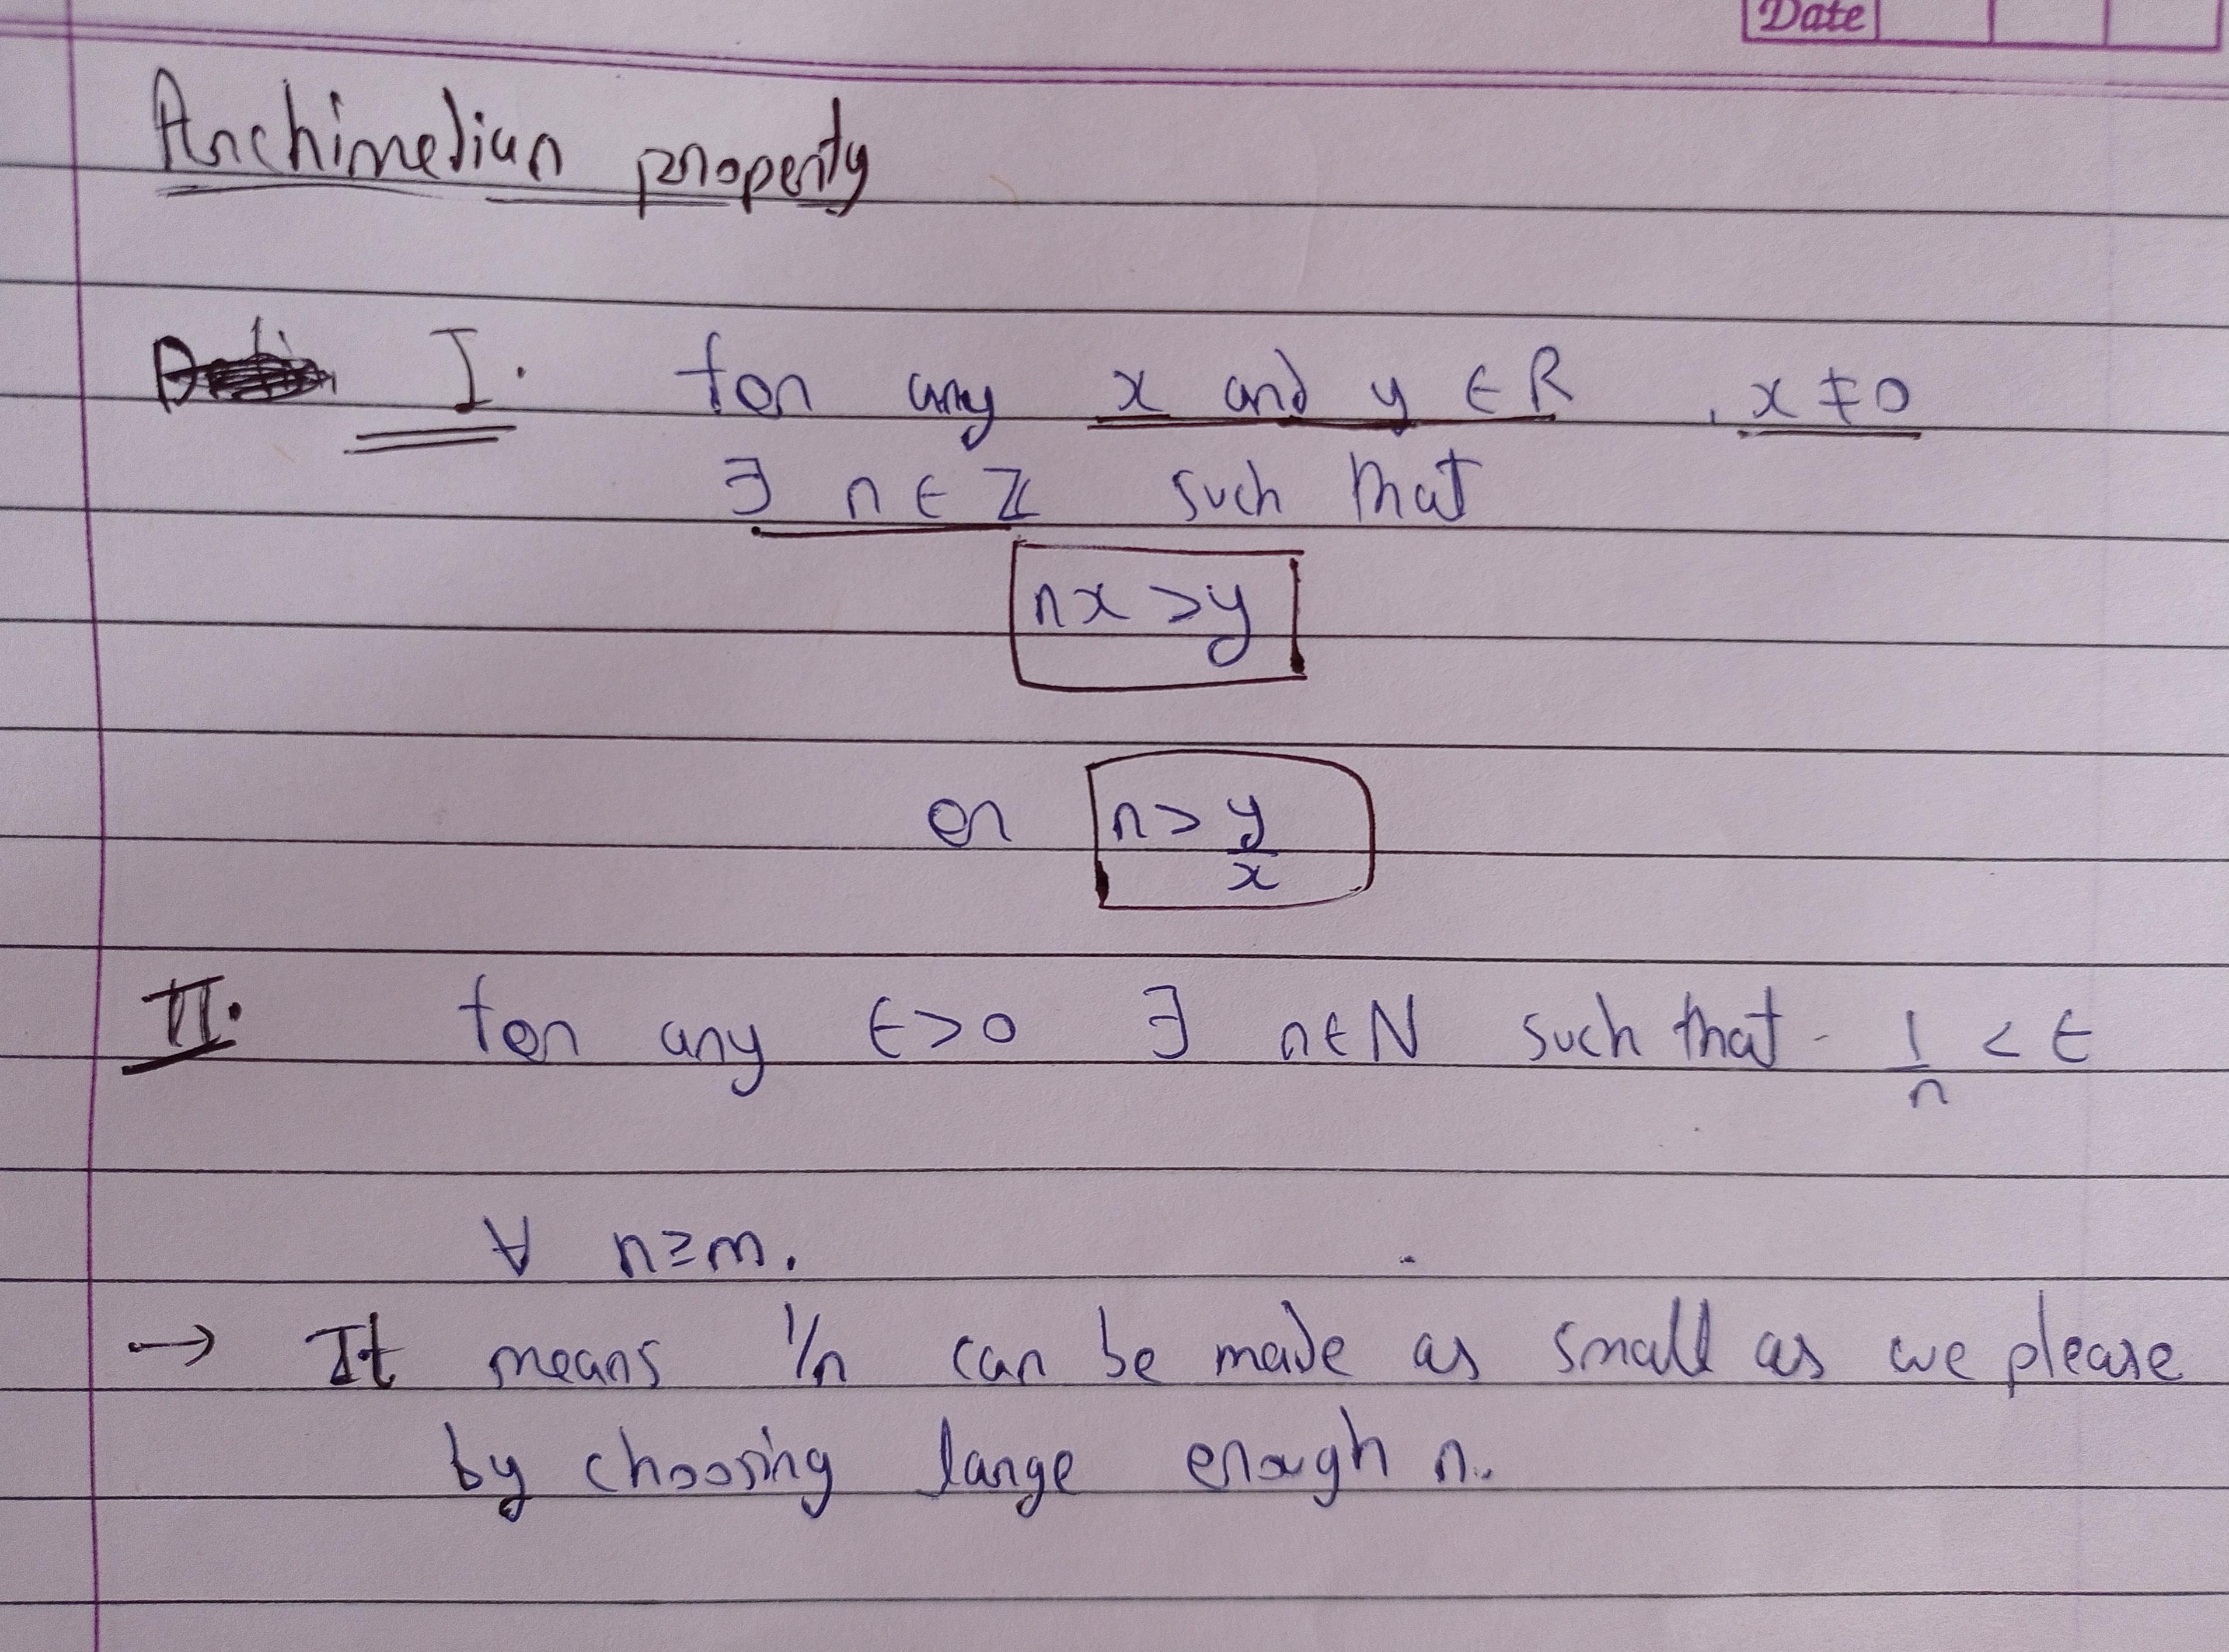 Date
Archimedian property
I. for any x and y ∈ R , x ≠ 0
∃ n ∈ ℤ such that
nx > y
or n > y/x
II. for any ε > 0 ∃ n ∈ N such that 1/n < ε
∀ n ≥ m.
→ It means 1/n can be made as small as we please
by choosing large enough n.